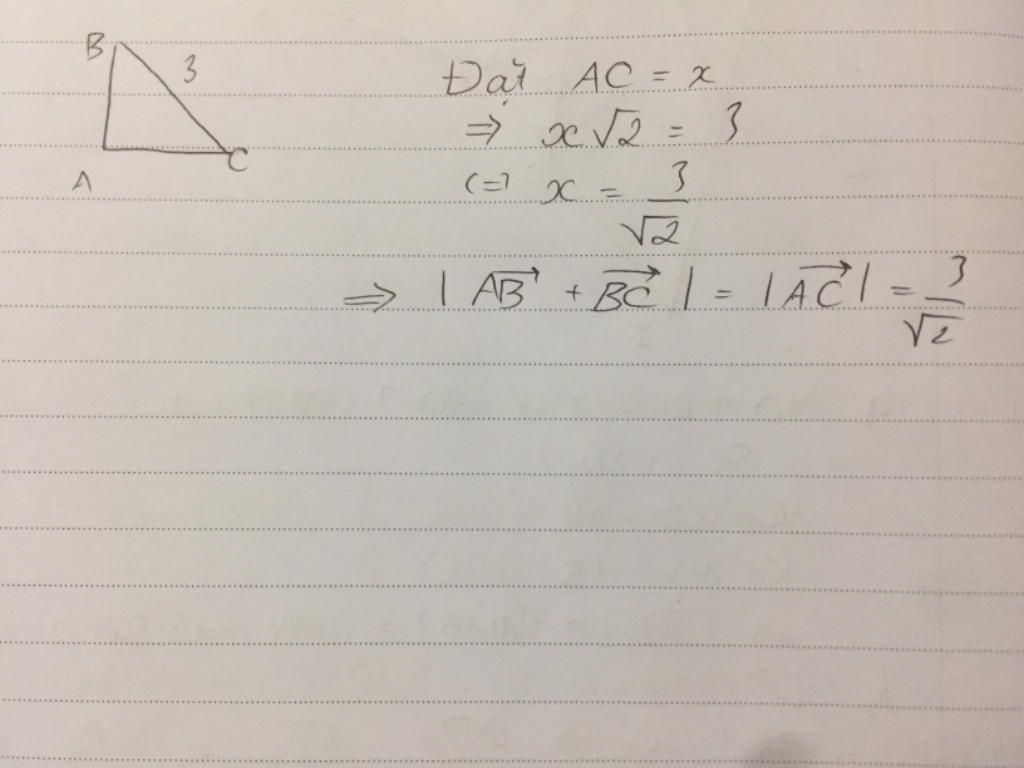 B
3
A
C
Đặt AC = x
⇒ x√2 = 3
(=) x = 3/√2
⇒ |AB→ + BC→| = |AC→| = 3/√2